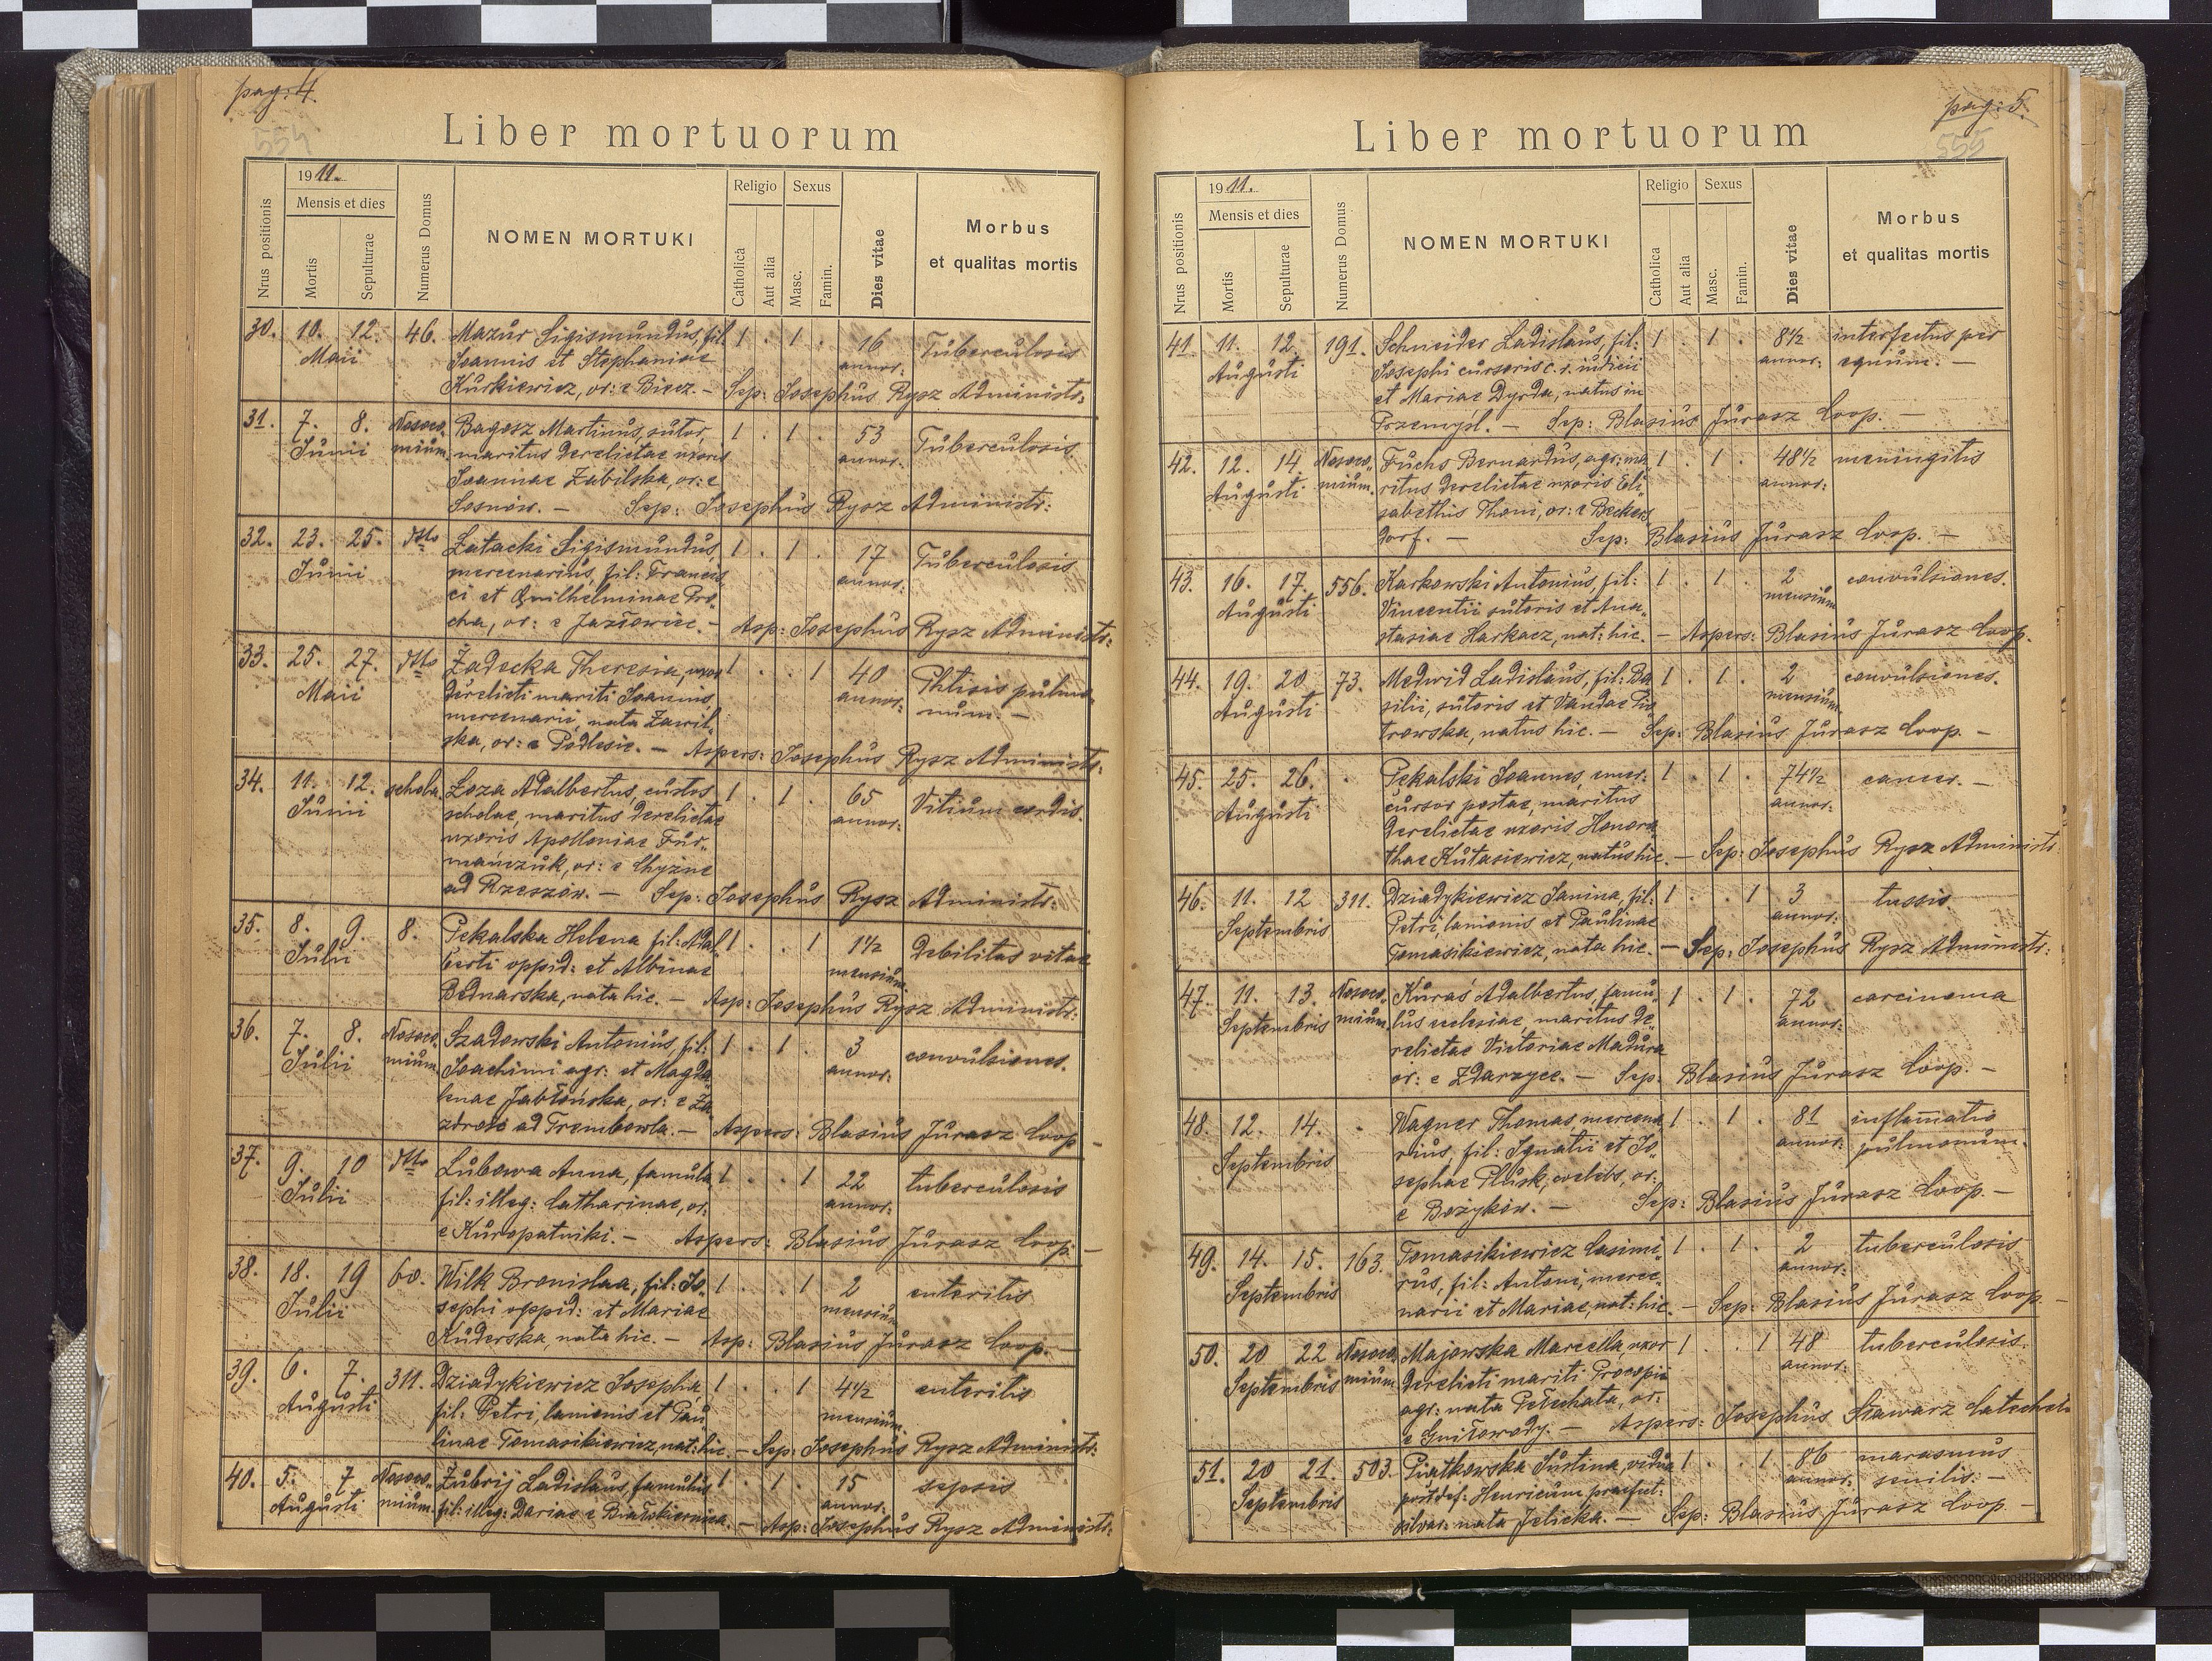 pag: 4.
554
Liber mortuorum
1911.
Mensis et dies
Nrus positionis
Mortis
Sepulturae
Numerus Domus
NOMEN MORTUKI
Religio
Sexus
Catholica
Aut alia
Masc.
Famin.
Dies vitae
Morbus
et qualitas mortis
30. 10. 12. 46. Mazur Sigismundus, fil: 1 . 1 . 16 Tuberculosis
Maii Joannis et Stephaniae annor:
Kurkiewicz, or: e Biecz. – Sep: Josephus Rysz Administr:
31. 7. 8. Nosoco- Bagosz Martinus, sutor, 1 . 1 . 53 Tuberculosis
Junii mium. maritus derelictae uxoris annor:
Joannae Zabilska, or: e
Sosnów. – Sep: Josephus Rysz Administr:
32. 23. 25. dtto Łatacki Sigismundus, 1 . 1 . 17 Tuberculosis
Junii mercenarius, fil: Francis annor:
ci et Guilhelminae Pro-
cha, or: e Jazłowiec. – Asp: Josephus Rysz Administr:
33. 25. 27. dtto Żadecka Theresia, uxor 1 . . 1 40 Phtisis pulmo-
Maii derelicti mariti Joannis annor: num. –
mercenarii, nata Zawil-
ska, or: e Podlesie. – Aspers: Josephus Rysz Administr:
34. 11. 12. schola. Łoza Adalbertus, custos 1 . 1 . 65 Vitium cordis.
Junii scholae, maritus derelictae annor:
uxoris Apolloniae Fur-
mańczuk, or: e Chyżne
ad Rzeszów. – Sep: Josephus Rysz Administr:
35. 8. 9. 8. Pekalska Helena fil: Adal- 1 . . 1 1½ Debilitas vitae
Julii berti oppid: et Albinae mensium.
Bednarska, nata hic. – Asp: Josephus Rysz Administr:
36. 7. 8. Nosoco- Szadowski Antonius, fil: 1 . 1 . 3 convulsiones.
Julii mium. Joachimi agr: et Magda- annor:
lenae Jabłońska, or: e Za-
zdrość ad Trembowla. – Aspers: Blasius Jurasz Coop. –
37. 9. 10 dtto Lubowa Anna, famula 1 . . 1 22 tuberculosis
Julii fil: illeg: Catharinae, or: annor:
e Kuropatniki. – Aspers: Blasius Jurasz Coop. –
38. 18. 19 60. Wilk Bronislaa, fil: Jo- 1 . . 1 2 enteritis
Julii sephi oppid: et Mariae mensium
Kuderska, nata hic. – Asp: Blasius Jurasz Coop. –
39. 6. 7. 311. Dziadykiewicz Josepha 1 . . 1 4½ enteritis
Augusti fil: Petri, lanionis et Pau mensium.
linae Tomasikiewicz, nat: hic. – Sep: Josephus Rysz Administr:
40. 5. 7 Nosoco- Zubrij Ladislaus, famulus 1 . 1 . 15 sepsis
Augusti mium. fil: illeg: Dariae e Białokiernica. annor: – Asp: Josephus Rysz Administr:
pag: 5.
555
Liber mortuorum
1911.
Mensis et dies
Nrus positionis
Mortis
Sepulturae
Numerus Domus
NOMEN MORTUKI
Religio
Sexus
Catholica
Aut alia
Masc.
Famin.
Dies vitae
Morbus
et qualitas mortis
41. 11. 12. 191. Schneider Ladislaus, fil: 1 . 1 . 8½ interfectus per
Augusti Josephi cursoris c. r. iudicii annor: equum. –
et Mariae Dyrda, natus in
Przemyśl. – Sep: Blasius Jurasz Coop. –
42. 12. 14. Nosoco- Fuchs Bernardus, agr: ma- 1 . 1 . 48½ meningitis
Augusti mium. ritus derelictae uxoris Eli- annor:
sabethis Thoni, or: e Beckers
dorf. – Sep: Blasius Jurasz Coop. –
43. 16. 17. 556. Karkowski Antonius, fil: 1 . 1 . 2 convulsiones.
Augusti Vincentii sutoris et Ana- mensium
stasiae Harkacz, nat: hic. – Aspers: Blasius Jurasz Coop.
44. 19. 20. 73. Medwid Ladislaus, fil: Ba 1 . 1 . 2 convulsiones.
Augusti silii, sutoris et Vandae Pio mensium.
trowska, natus hic. – Sep: Blasius Jurasz Coop. –
45. 25. 26. . Pekalski Joannes, emer: 1 . 1 . 74½ cancer. –
Augusti cursor postae, maritus annor:
derelictae uxoris Honora-
thae Kutasiewicz, natus hic. – Sep: Josephus Rysz Administr:
46. 11. 12 311. Dziadykiewicz Janina, fil: 1 . . 1 3 tussis.
Septembris Petri, lanionis et Paulinae annor:
Tomasikiewicz, nata hic. – Sep: Josephus Rysz Administr:
47. 11. 13. Nosoco- Kuraś Adalbertus, famu- 1 . 1 . 72 carcinoma
Septembris mium. lus ecclesiae, maritus de- annor:
relictae Victoriae Madura
or: e Zdarzyce. – Sep: Blasius Jurasz Coop. –
48. 12. 14. . Wagner Thomas, mercena 1 . 1 . 81 inflam̄atio
Septembris rius, fil: Ignatii et Jo- annor: pulmonum.
sephae Plusk, coelebs, or:
e Bożyków. – Sep: Blasius Jurasz Coop. –
49. 14. 15. 163. Tomasikiewicz Casimi- 1 . 1 . 2 tuberculosis
Septembris rus, fil: Antoni, merce- annor:
narii et Mariae, nat: hic. – Sep: Blasius Jurasz Coop. –
50. 20 22 Nosoco- Majewska Marcella, uxor 1 . . 1 48 tuberculosis.
Septembris mium. derelicti mariti Procopii annor:
agr: nata Pełechata, or:
e Gniłowody. – Aspers: Josephus Stawarz Catecheta
51. 20 21. 503. Piatkowska Justina, vidua 1 . . 1 86 marasmus
Septembris post def: Henricum praefect: annor: senilis. –
silvar: nata Jelicka. – Sep: Blasius Jurasz Coop –